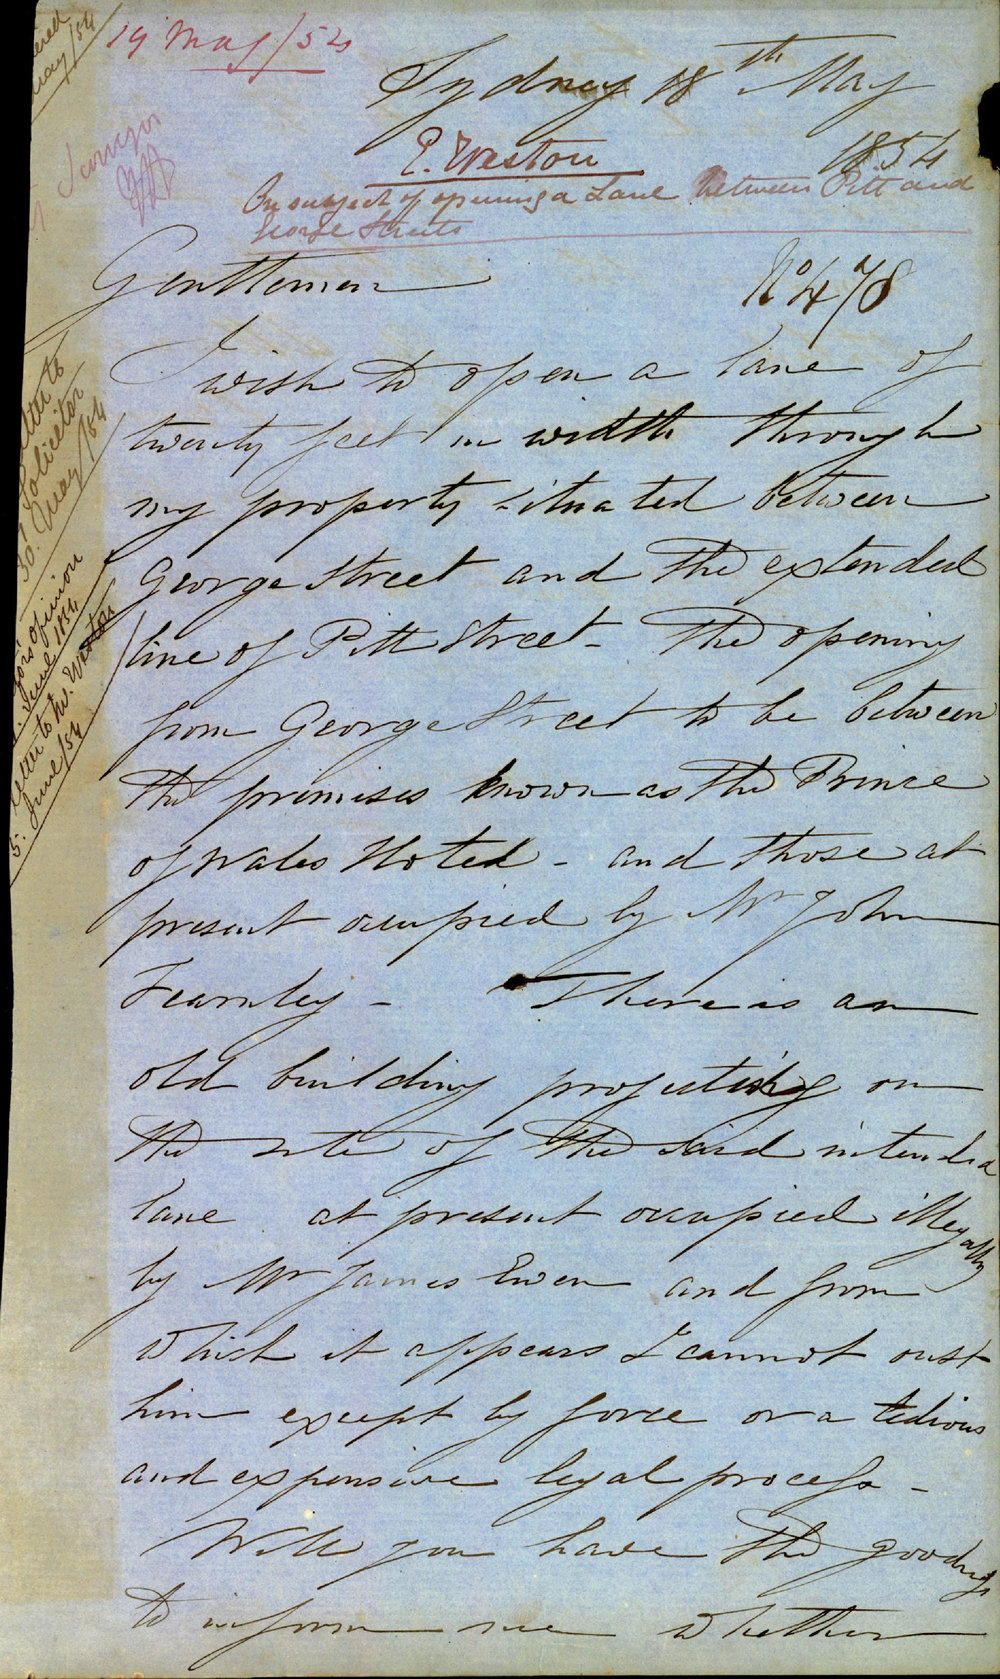 19 May/54
Sydney 18th May
1854
E. Weston
On subject of opening a Lane between Pitt and
George Streets
Gentlemen
No 478
I wish to open a lane of
twenty feet in width through
my property situated between
George Street and the extended
line of Pitt Street - The opening
from George Street to be between
the premises known as the Prince
of Wales Hotel - and those at
present occupied by Mr John
Fearnley - There is an
old building projecting on
the site of the said intended
lane at present occupied illegally
by Mr James Ewen and from
which it appears I cannot oust
him except by force or a tedious
and expensive legal process -
Will you have the goodness
to inform me whether
May/54
Surveyor
Letter to
Solicitor
30. May/54
opinion
June 1854
Letter to W. Weston
5. June/54